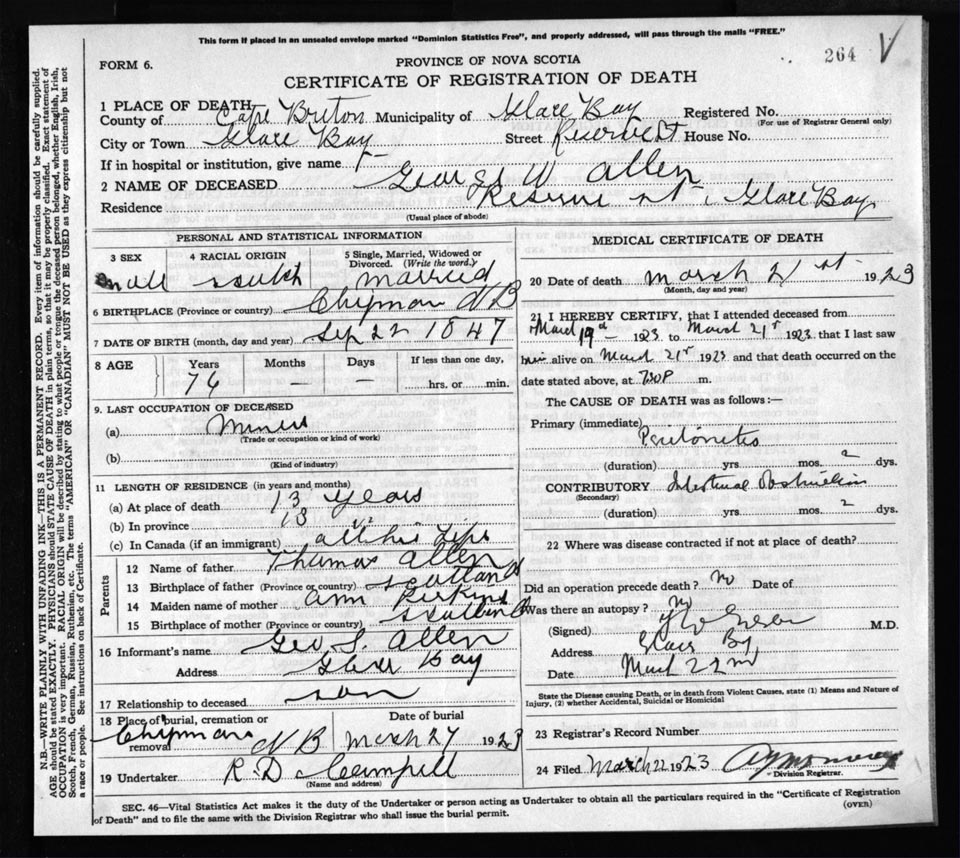 This form if placed in an unsealed envelope marked "Dominion Statistics Free", and properly addressed, will pass through the mails "FREE."
264
FORM 6.
PROVINCE OF NOVA SCOTIA
CERTIFICATE OF REGISTRATION OF DEATH
1 PLACE OF DEATH
County of Cape Briton Municipality of Glace Bay Registered No.
(For use of Registrar General only)
City or Town Glace Bay Street Reserve St House No.
If in hospital or institution, give name
2 NAME OF DECEASED George W Allen
Residence Reserve st Glace Bay
(Usual place of abode)
PERSONAL AND STATISTICAL INFORMATION
3 SEX 4 RACIAL ORIGIN 5 Single, Married, Widowed or Divorced. (Write the word.)
male scotch married
6 BIRTHPLACE (Province or country) Chipman NB
7 DATE OF BIRTH (month, day and year) Sep 22 1847
8 AGE Years Months Days If less than one day,
76 — — hrs. or min.
9. LAST OCCUPATION OF DECEASED
(a) Miner
(Trade or occupation or kind of work)
(b)
(Kind of industry)
11 LENGTH OF RESIDENCE (in years and months)
(a) At place of death 13 years
(b) In province 13
(c) In Canada (if an immigrant) all his Life
Parents
12 Name of father Thomas Allen
13 Birthplace of father (Province or country) Scotland
14 Maiden name of mother Ann Perkins
15 Birthplace of mother (Province or country) Scotland
16 Informant's name Geo S. Allen
Address Glace Bay
17 Relationship to deceased son
18 Place of burial, cremation or removal Date of burial
Chipman NB March 27 1923
19 Undertaker R.D Campell
(Name and address)
MEDICAL CERTIFICATE OF DEATH
20 Date of death March 21 st 1923
(Month, day and year)
21 I HEREBY CERTIFY, that I attended deceased from
March 19 1923 to March 21st 1923 that I last saw
him alive on March 21st 1923 and that death occurred on the
date stated above, at 730P m.
The CAUSE OF DEATH was as follows:—
Primary (immediate)
Peritonitis
(duration) yrs. mos. 2 dys.
CONTRIBUTORY Intestinal Obstruction
(Secondary)
(duration) yrs. mos. 2 dys.
22 Where was disease contracted if not at place of death?
Did an operation precede death? No Date of
Was there an autopsy? No
(Signed) M.D.
Address Glace Bay
Date March 22nd
State the Disease causing Death, or in death from Violent Causes, state (1) Means and Nature of
Injury, (2) whether Accidental, Suicidal or Homicidal
23 Registrar's Record Number
24 Filed March 22 1923
Division Registrar.
SEC. 46—Vital Statistics Act makes it the duty of the Undertaker or person acting as Undertaker to obtain all the particulars required in the "Certificate of Registration
of Death" and to file the same with the Division Registrar who shall issue the burial permit. (OVER)
N.B.—WRITE PLAINLY WITH UNFADING INK—THIS IS A PERMANENT RECORD. Every item of information should be carefully supplied.
AGE should be stated EXACTLY. PHYSICIANS should STATE CAUSE OF DEATH in plain terms, so that it may be properly classified. Exact statement of
OCCUPATION is very important. RACIAL ORIGIN will be described by stating to what people or tongue the deceased person belonged, whether English, Irish,
Scotch, French, German, Russian, Ruthenian, etc. The terms "AMERICAN" OR "CANADIAN" MUST NOT BE USED as they express citizenship but not
a race or people. See instructions on back of Certificate.